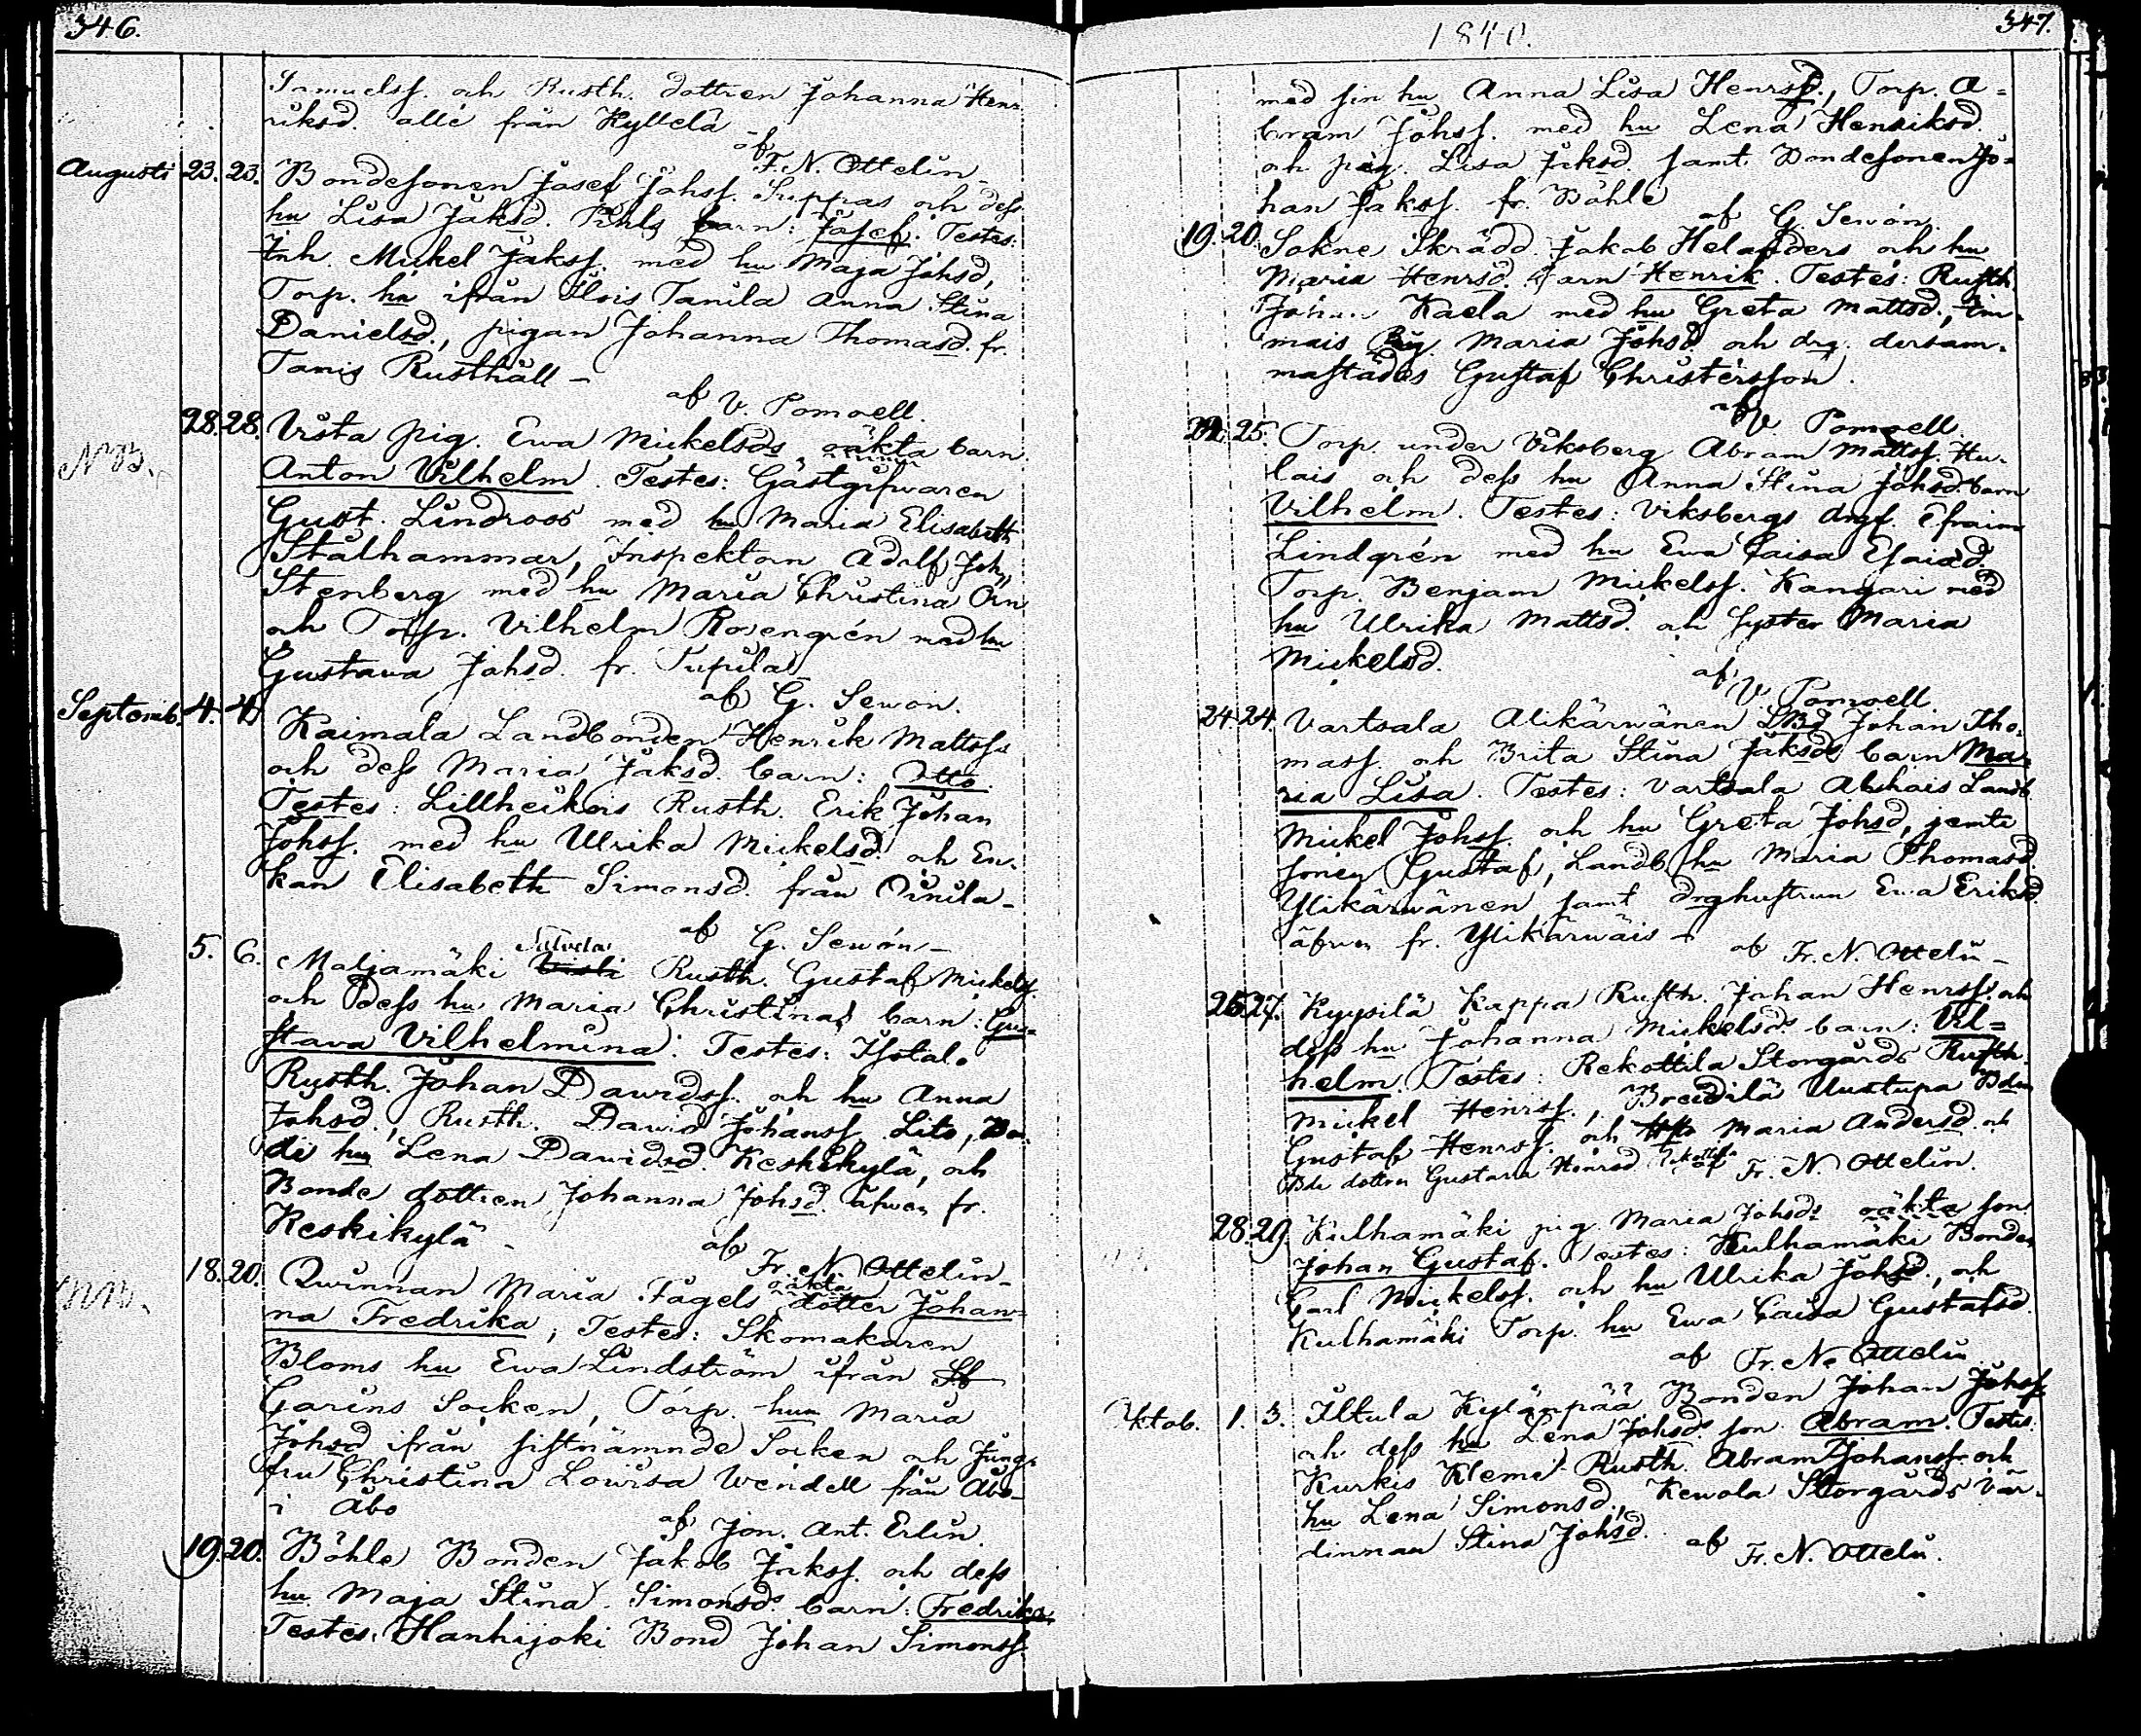 346.
Samuelsf. och Rusth. dottren Johanna Hen-
riksd. alle från Kyllela
af F. N. Ottelin
Augusti 23. 23. Bondesonen Josef Johsf. Suppas och dess
hu Lisa Jaksd. Pihls barn: Josef. Testes:
Inh. Mickel Jaksf. med hu Maja Johsd,
Torp. hu ifrån Ilois Tanila Anna Stina
Danielsd., pigan Johanna Thomasd. fr.
Tanis Rusthåll –
af V. Pomoell.
28. 28. Vista pig. Ewa Mickelsds oäkta barn
NB. Anton Vilhelm. Testes: Gästgifvaren
Gust. Lindroos med hu Maria Elisabeth
Stålhammar, Inspektorn Adolf Joh.
Stenberg med hu Maria Christina Orn
och Torp. Vilhelm Rosengrén med hu
Gustava Johsd. fr. Tupila
af G. Sewon.
Septemb. 4. 4. Kaimala Landbonden Henrik Mattsfs
och dess Maria Jaksd. barn: Otto.
Testes: Lillheikois Rusth. Erik Johan
Johsf. med hu Ulrika Mickelsd. och En-
kan Elisabeth Simonsd. från
af G. Sewón –
5. 6. Maljamäki Rusth. Gustaf Mickelsf.
och dess hu Maria Christinas barn: Gus-
tava Vilhelmina. Testes: Isotalo
Rusth. Johan Dawidsf. och hu Anna
Johsd., Rusth. Dawid Johansf. Lito, Bon-
de hu Lena Dawidsd. Keskikylä, och
Bonde dottren Johanna Johsd. äfwen fr.
Keskikylä –
af Fr. N. Ottelin –
18. 20. Qwinnan Maria Fagels oäkta dotter Johan-
na Fredrika; Testes: Skomakaren
Bloms hu Ewa Lindström ifrån
Garins Socken, Torp. hun Maria
Johsd ifrån sistnämnde Socken och Jung-
fru Christina Lowisa Wendell från Åbo
i Åbo
af Jon. Ant. Erlin.
19. 20. Böhle Bonden Jakob Jaksf. och dess
hu Maja Stina Simonsds barn: Fredrika.
Testes: Hanhijoki Bond Johan Simonsf.
1840.
347.
med sin hu Anna Lisa Henrsd., Torp. A-
bram Johsf. med hu Lena Henriksd.
och pig. Lisa Jaksd. samt Bondesonen Jo-
han Jaksf. fr. Böhle
af G. Sewón.
19. 20. Sokne Skrädd. Jakob Helanders och hu
Maria Henrsd. barn Henrik. Testes: Rusth.
Johan Kaela med hu Greta Mattsd., Im-
mais pig Maria Johsd och drg. dersam-
mastädes Gustaf Christersson.
af V. Pomoell.
25. Torp. under Viksberg Abram Mattsf. Hu-
lais och dess hu Anna Stina Johsds barn
Vilhelm. Testes: Viksbergs drgf. Efraim
Lindgrén med hu Ewa Caisa Esaiad.
Torp. Benjam Mickelsf. Kangari med
hu Ulrika Mattsd. och syster Maria
Mickelsd.
af V. Pomoell.
24. 24. Vartsala Alikärwänen LBd Johan Tho-
masf. och Brita Stina Jaksds barn Ma-
ria Lisa. Testes: Vartsala Landb.
Mickel Johsf. och hu Greta Johsd, jemte
sonen Gustaf, Landb. hu Maria Thomasd.
Ylikärwänen samt drghustrun Ewa Eriksd.
äfwen fr. Ylikärwäis –
af Fr. N. Ottelin –
26. 27. Kyysilä Kappa Rusth. Johan Henrsf. och
dess hu Johanna Mickelsds barn: Vil-
helm. Testes: Rekottila Storgårds Rusth.
Mickel Henrsf., Breidilä Uustupa Bden
Gustaf Henrsf. och Maria Andersd. och
Bde dottren Gustava Henrsd.
af Fr. N. Ottelin.
28. 29. Kulhamäki pig. Maria Johsds oäkta son
Johan Gustaf. Testes: Kulhamäki Bonden
Carl Mickelsf. och hu Ulrika Johsd., och
Kulhamäki Torp. hu Ewa Caisa Gustafsd.
af Fr. N. Ottelin
Oktob. 1. 3. Iltula Kylänpää Bonden Johan Johsf.
och dess hu Lena Johsds son Abram. Testes:
Kurkis Klemei Rusth. Abram Johansf. och
hu Lena Simonsd., Kewola Storgårds vär-
dinnan Stina Johsd.
af Fr. N. Ottelin.